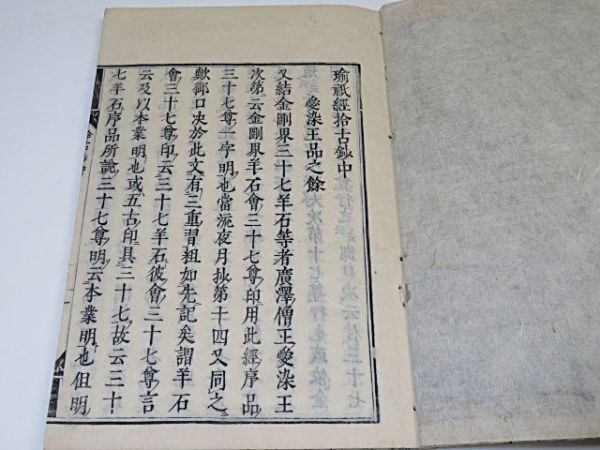 瑜祇經拾古鈔中
愛染王品之餘
又結金剛界三十七羊石等者廣澤僧正愛染王
次第云金剛界羊石會三十七尊印用此經序品
三十七尊一字明也當流夜月抄第十四又同之
歟御口决於此文有三重習粗如先記矣謂羊石
會三十七尊印云三十七羊石彼會三十七尊言
云及以本業明也或五古印具三十七故云三十
七羊石序品所說三十七尊明云本業明也但明